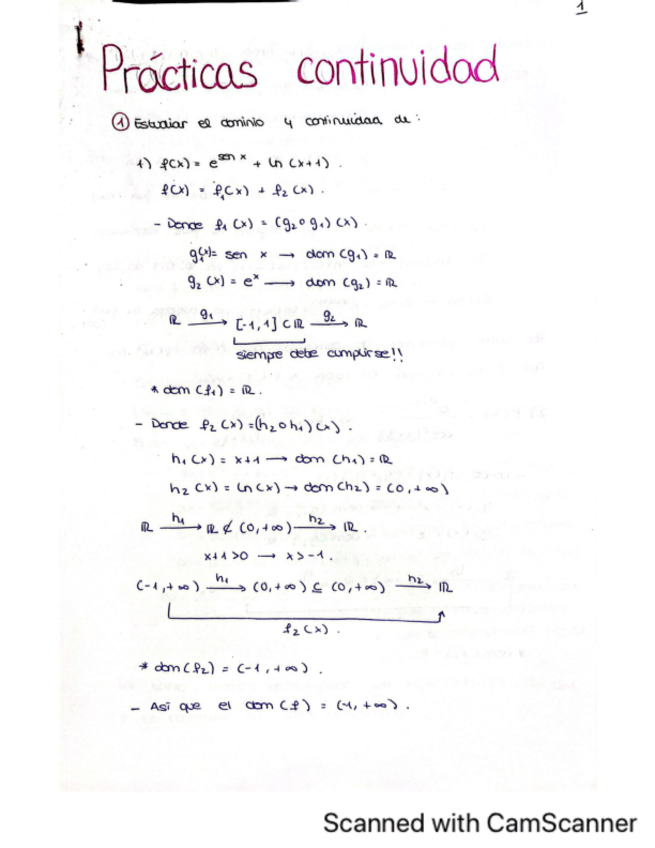 1
Prácticas continuidad
① Estudiar el dominio y continuidad de :
1) f(x) = e^sen x + ln (x+1) .
f(x) = f₁(x) + f₂ (x) .
- Donde f₁ (x) = (g₂ ∘ g₁) (x) .
g₁(x)= sen x → dom (g₁) = ℝ
g₂ (x) = eˣ → dom (g₂) = ℝ
ℝ —g₁→ [-1, 1] ⊂ ℝ —g₂→ ℝ
siempre debe cumplirse!!
* dom (f₁) = ℝ.
- Donde f₂ (x) =(h₂ ∘ h₁) (x) :
h₁ (x) = x+1 → dom (h₁) = ℝ
h₂ (x) = ln (x) → dom (h₂) = (0, +∞)
ℝ —h₁→ ℝ ⊄ (0, +∞) —h₂→ ℝ .
x+1 >0 → x > -1 .
(-1, +∞) —h₁→ (0, +∞) ⊆ (0, +∞) —h₂→ ℝ
f₂ (x) .
* dom (f₂) = (-1, +∞) .
- Así que el dom (f) = (-1, +∞) .
Scanned with CamScanner